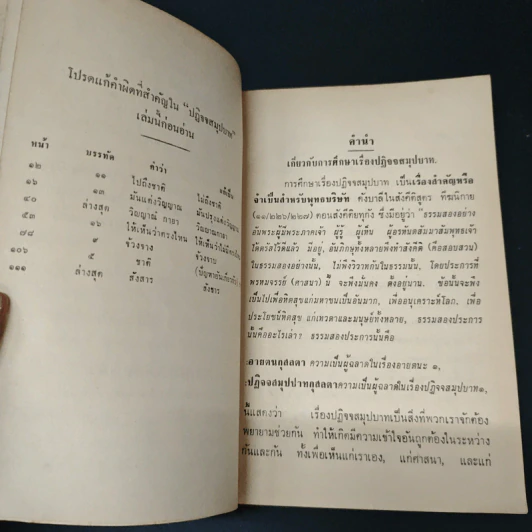 โปรดแก้คำผิดที่สำคัญใน "ปฏิจจสมุปบาท"
เล่มนี้ก่อนอ่าน
หน้า บรรทัด คำว่า
๑๒ ๑๑ ไปถึงชาติ ไม่ถึงชาติ
๑๖ ๑๓ มันแต่งวิญญาณ มันปรุงแต่งวิญญาณ
๔๓ ล่างสุด วิญญาณ กายา
๗๘ ๑๖ ให้เห็นว่าตรงไหน
๙ ช้วงจาง จ้วงจาบ
๑๐๖ ๕ ชาติ
๑๑๑ ล่างสุด สังสาร สังขาร
คำนำ
เกี่ยวกับการศึกษาเรื่องปฏิจจสมุปบาท.
การศึกษาเรื่องปฏิจจสมุปบาท เป็นเรื่องสำคัญหรือ
จำเป็นสำหรับพุทธบริษัท ดังบาลีในสังคีติสูตร ทีฆนิกาย
(๑๑/๒๒๖/๒๒๗) ตอนสังคีติยทุกัง ซึ่งมีอยู่ว่า "ธรรมสองอย่าง
อันพระผู้มีพระภาคเจ้า ผู้รู้ ผู้เห็น ผู้อรหันตสัมมาสัมพุทธเจ้า
ได้ตรัสไว้ดีแล้ว มีอยู่, อันภิกษุทั้งหลายพึงทำสังคีติ (คือสอบสวน)
ในธรรมสองอย่างนั้น, ไม่พึงวิวาทกันในธรรมนั้น, โดยประการที่
พรหมจรรย์ (ศาสนา) นี้ จะพึงมั่นคง ตั้งอยู่นาน. ข้อนั้นจะพึง
เป็นไปเพื่อหิตสุขแก่มหาชนเป็นอันมาก, เพื่ออนุเคราะห์โลก, เพื่อ
ประโยชน์หิตสุข แก่เทวดาและมนุษย์ทั้งหลาย, ธรรมสองประการ
นั้นคืออะไรเล่า? ธรรมสองประการนั้นคือ
อายตนกุสลตา ความเป็นผู้ฉลาดในเรื่องอายตนะ ๑,
ปฏิจจสมุปปาทกุสลตา ความเป็นผู้ฉลาดในเรื่องปฏิจจสมุปบาท ๑,
นี้แสดงว่า เรื่องปฏิจจสมุปบาทเป็นสิ่งที่พวกเราจักต้อง
พยายามช่วยกัน ทำให้เกิดมีความเข้าใจอันถูกต้องในระหว่าง
กันและกัน ทั้งเพื่อเห็นแก่เราเอง, แก่ศาสนา, และแก่